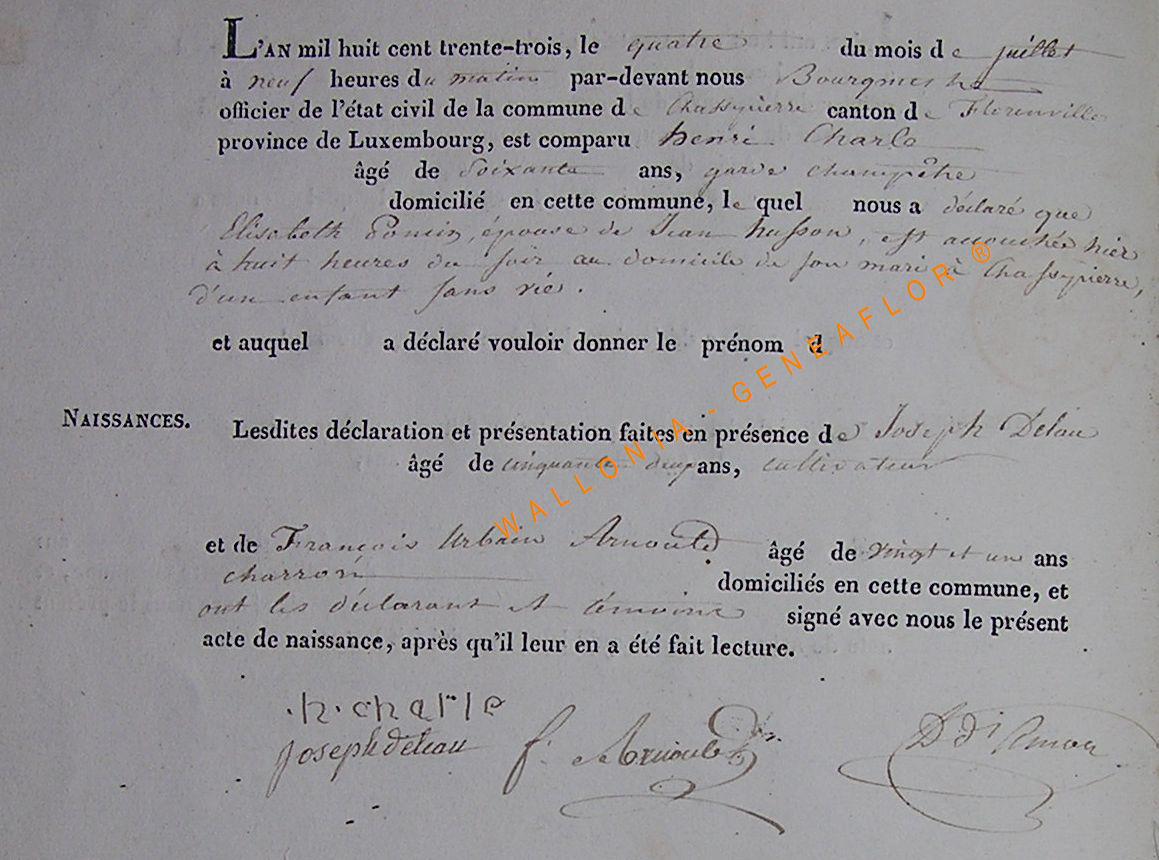 L'AN mil huit cent trente-trois, le quatre du mois de juillet
à neuf heures du matin par-devant nous Bourgmestre
officier de l'état civil de la commune de Chassepierre canton de Florenville
province de Luxembourg, est comparu henri Charle
âgé de Soixante ans, garde champêtre
domicilié en cette commune, le quel nous a déclaré que
Elisabeth épouse de Jean husson, est accouchée hier
à huit heures du soir au domicile de son mari à Chassepierre,
d'un enfant sans vie.
et auquel a déclaré vouloir donner le prénom d
NAISSANCES.
Lesdites déclaration et présentation faites en présence de Joseph Delau
âgé de cinquante deux ans, cultivateur
et de François Urbain Arnould âgé de vingt et un ans
charron domiciliés en cette commune, et
ont les déclarant et témoins signé avec nous le présent
acte de naissance, après qu'il leur en a été fait lecture.
h. charle
joseph deleau f. Arnould
WALLONIA - GENEAFLOR ®